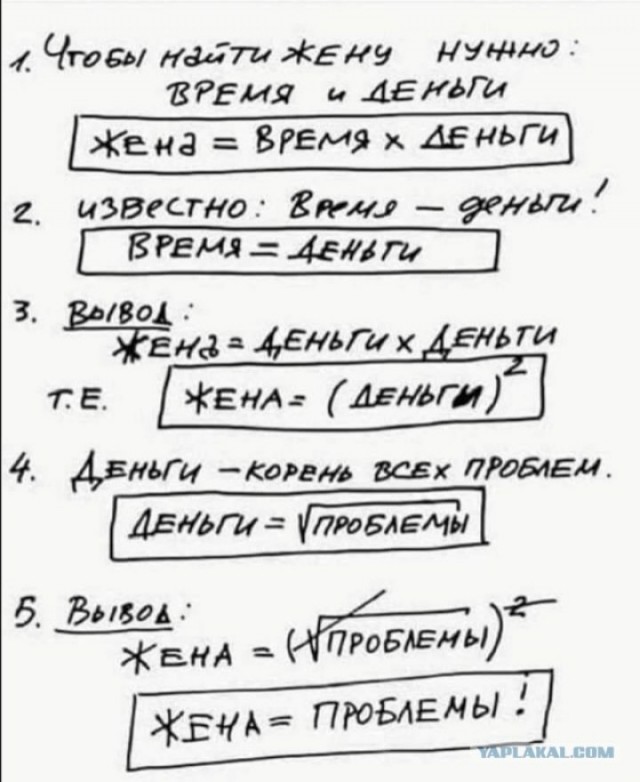 1. Чтобы найти жену нужно:
ВРЕМЯ и ДЕНЬГИ
Жена = ВРЕМЯ x ДЕНЬГИ
2. известно: Время – деньги!
ВРЕМЯ = ДЕНЬГИ
3. Вывод:
ЖЕНа = ДЕНЬГИ x ДЕНЬГИ
Т.Е. ЖЕНА = (ДЕНЬГИ)²
4. ДЕНЬГИ – КОРЕНЬ ВСЕХ ПРОБЛЕМ.
ДЕНЬГИ = √ПРОБЛЕМЫ
5. Вывод:
ЖЕНА = (√ПРОБЛЕМЫ)²
ЖЕНА = ПРОБЛЕМЫ!
YAPLAKAL.COM